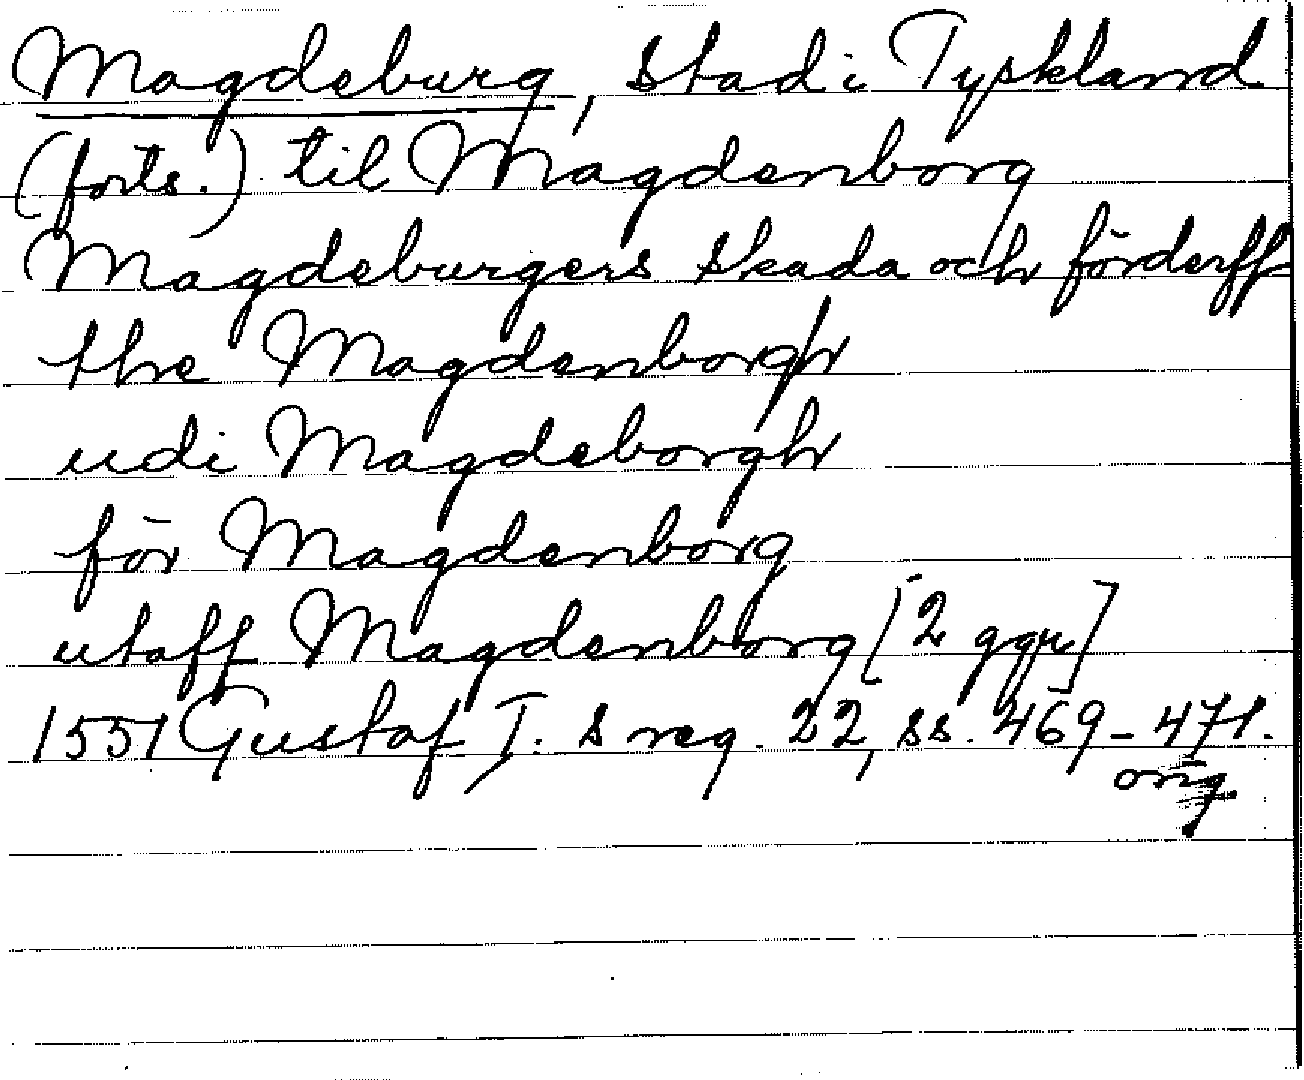 Magdeburg, stad i Tyskland
(forts.) til Magdenborg
Magdeburgers skada och förderff
the Magdenborgh
udi Magdeborgh
för Magdenborg
utaff Magdenborg [2 ggr]
1551 Gustaf I:s reg. 22, ss. 469-471.
orig